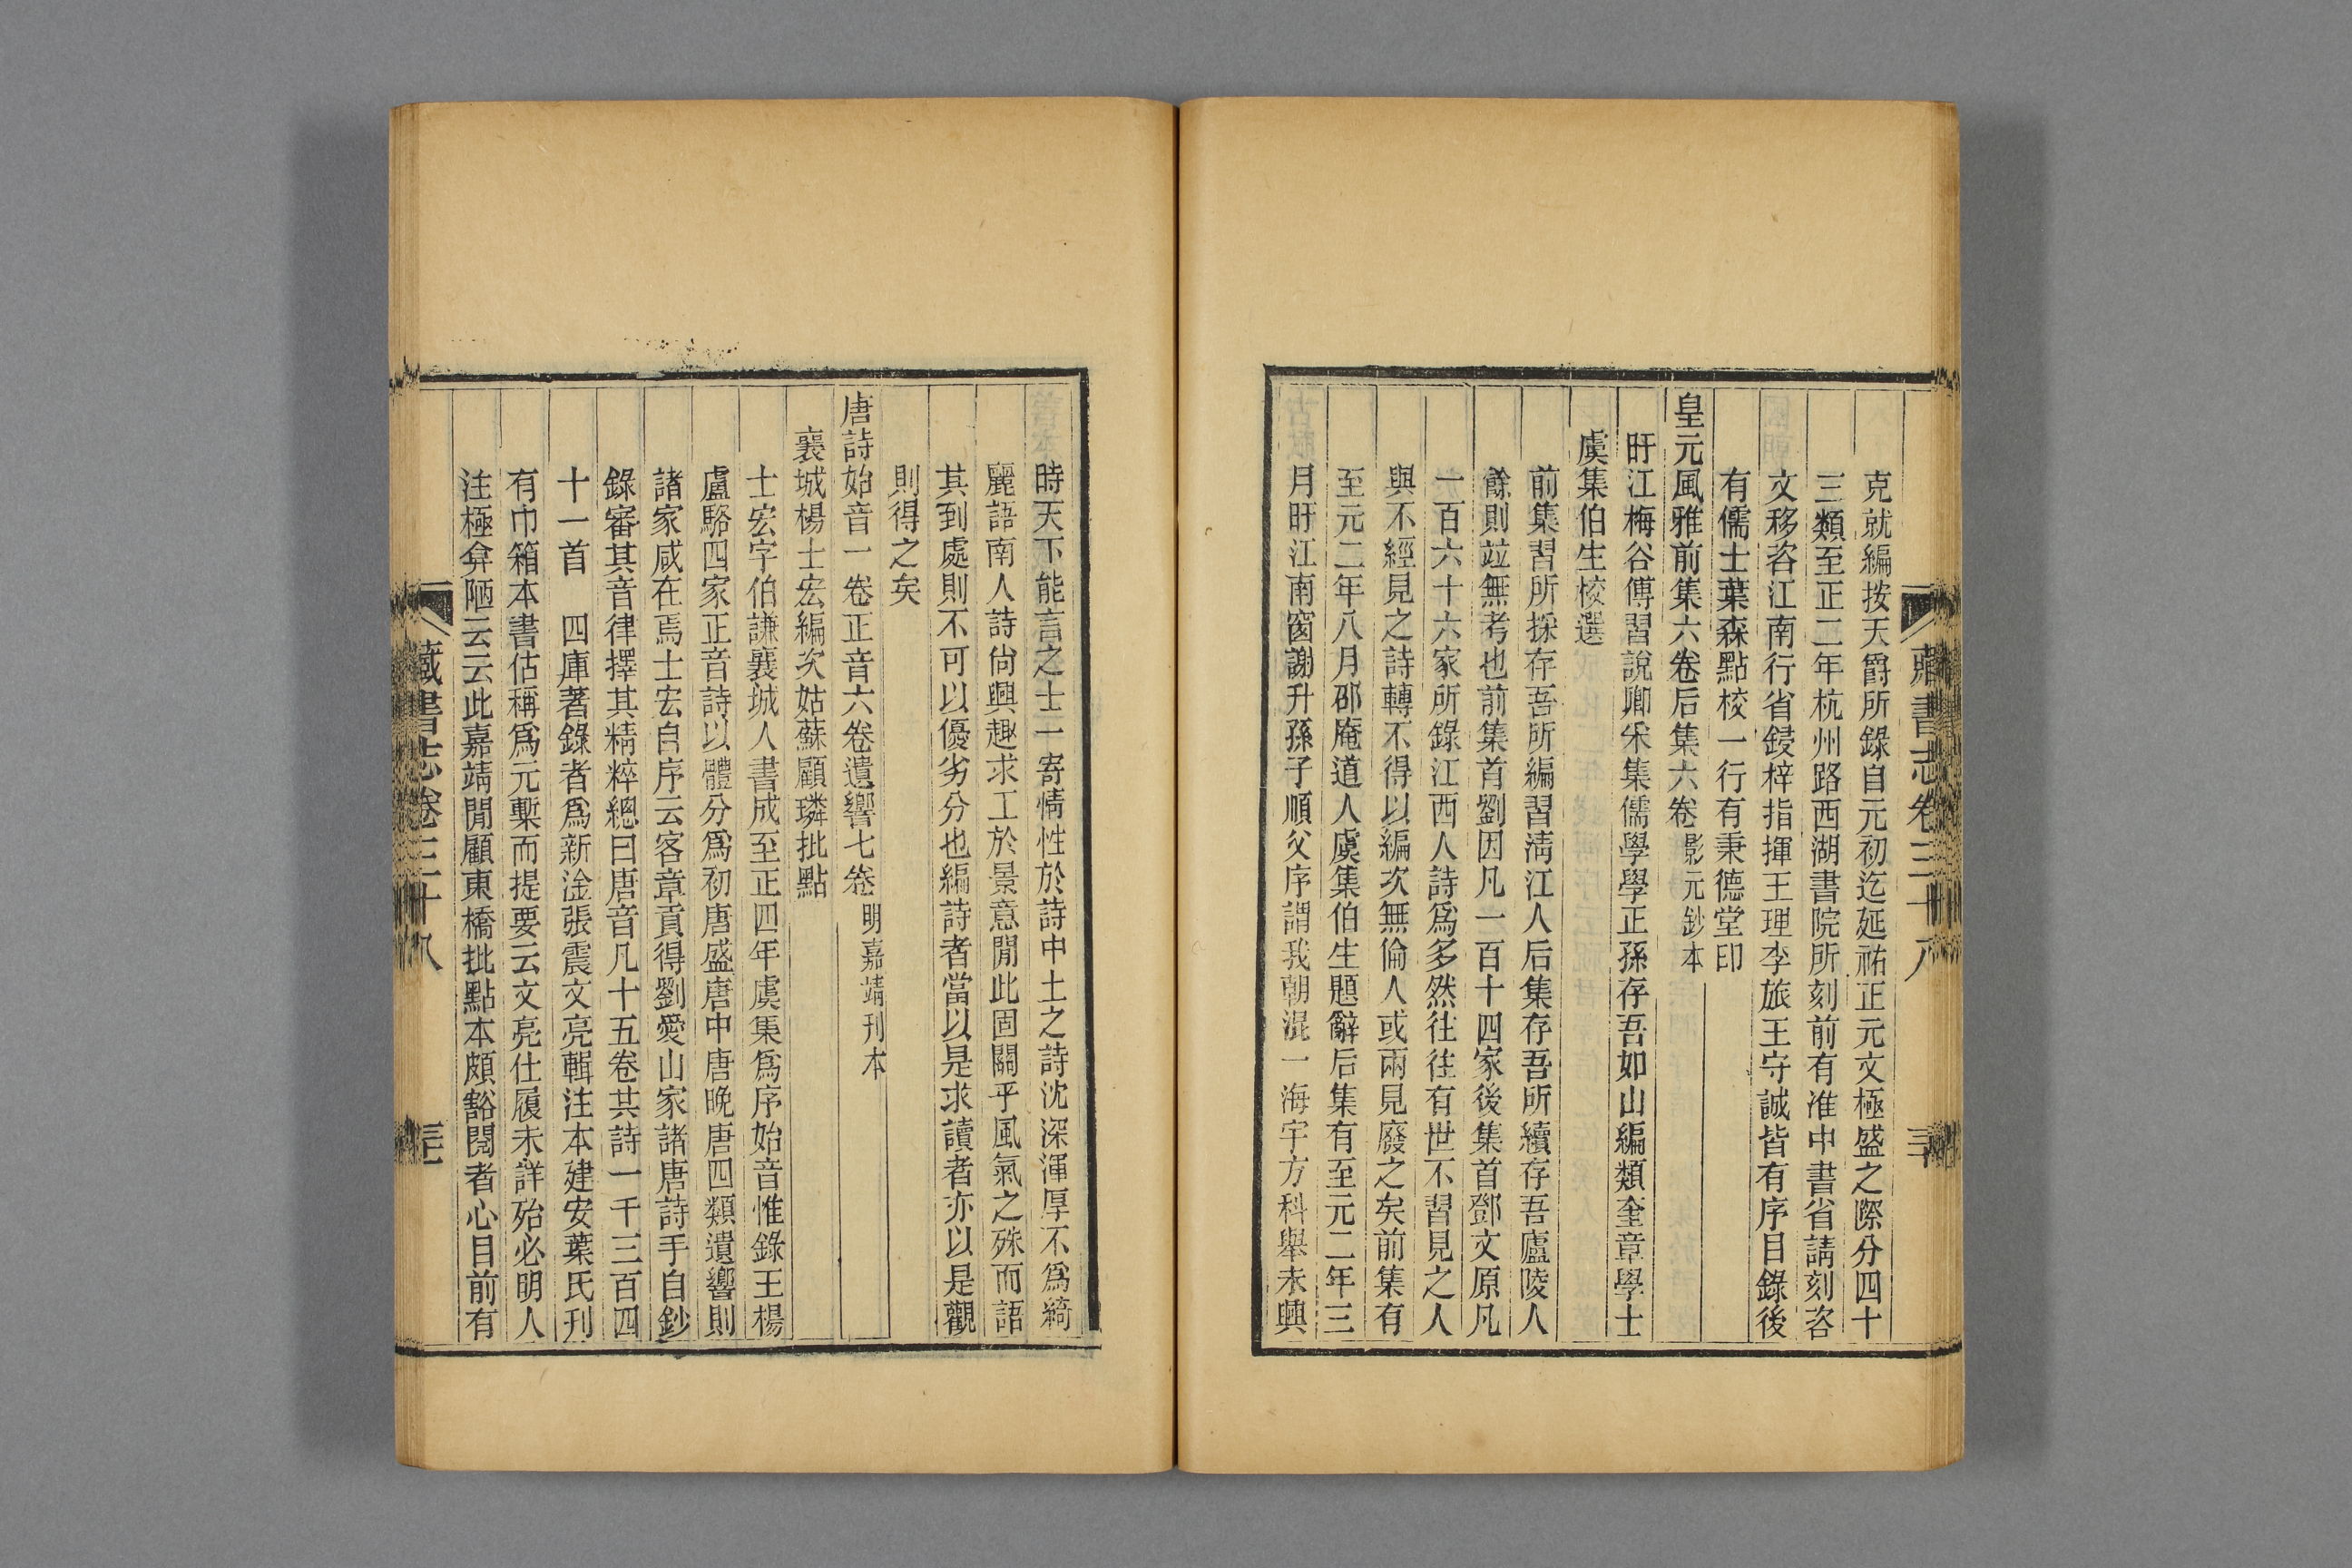 藏書志卷三十八
克就編按天爵所錄自元初迄延祐正元文極盛之際分四十
三類至正二年杭州路西湖書院所刻前有准中書省請刻咨
文移咨江南行省鋟梓指揮王理李旅王守誠皆有序目錄後
有儒士葉森點校一行有秉德堂印
皇元風雅前集六卷后集六卷 影元鈔本
旴江梅谷傅習說卿采集儒學學正孫存吾如山編類奎章學士
虞集伯生校選
前集習所採存吾所編習淸江人后集存吾所續存吾廬陵人
餘則竝無考也前集首劉因凡一百十四家後集首鄧文原凡
一百六十六家所錄江西人詩爲多然往往有世不習見之人
與不經見之詩轉不得以編次無倫人或兩見廢之矣前集有
至元二年八月邵庵道人虞集伯生題辭后集有至元二年三
月旴江南窗謝升孫子順父序謂我朝混一海宇方科舉未興
時天下能言之士一寄情性於詩中土之詩沈深渾厚不爲綺
麗語南人詩尙興趣求工於景意閒此固關乎風氣之殊而語
其到處則不可以優劣分也編詩者當以是求讀者亦以是觀
則得之矣
唐詩始音一卷正音六卷遺響七卷 明嘉靖刊本
襄城楊士宏編次姑蘇顧璘批點
士宏字伯謙襄城人書成至正四年虞集爲序始音惟錄王楊
盧駱四家正音詩以體分爲初唐盛唐中唐晚唐四類遺響則
諸家咸在焉士宏自序云客章貢得劉愛山家諸唐詩手自鈔
錄審其音律擇其精粹總曰唐音凡十五卷共詩一千三百四
十一首　四庫著錄者爲新淦張震文亮輯注本建安葉氏刊
有巾箱本書估稱爲元槧而提要云文亮仕履未詳殆必明人
注極弇陋云云此嘉靖閒顧東橋批點本頗豁閱者心目前有
藏書志卷三十八